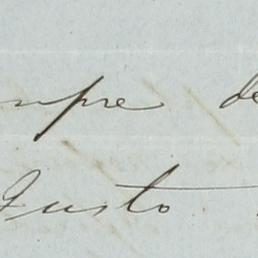 mpre de
Gusto